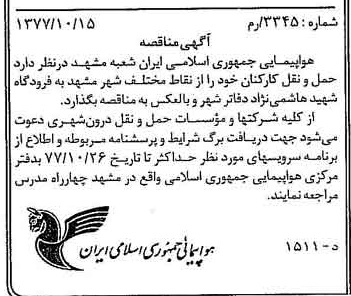 شماره: ۳۳۴۵/رم
۱۳۷۷/۱۰/۱۵
آگهی مناقصه
هواپیمایی جمهوری اسلامی ایران شعبه مشهد درنظر دارد
حمل و نقل کارکنان خود را از نقاط مختلف شهر مشهد به فرودگاه
شهید هاشمی‌نژاد دفاتر شهر و بالعکس به مناقصه بگذارد.
از کلیه شرکتها و مؤسسات حمل و نقل درون‌شهری دعوت
می‌شود جهت دریافت برگ شرایط و پرسشنامه مربوطه و اطلاع از
برنامه سرویسهای مورد نظر حداکثر تا تاریخ ۷۷/۱۰/۲۶ بدفتر
مرکزی هواپیمایی جمهوری اسلامی واقع در مشهد چهارراه مدرس
مراجعه نمایند.
د-۱۵۱۱
هواپیمائی جمهوری اسلامی ایران